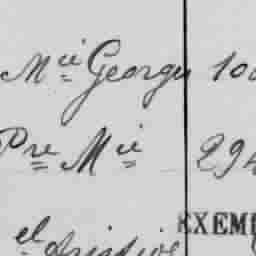 Mie Georges 100
Pre Mie 294
EXEM
el